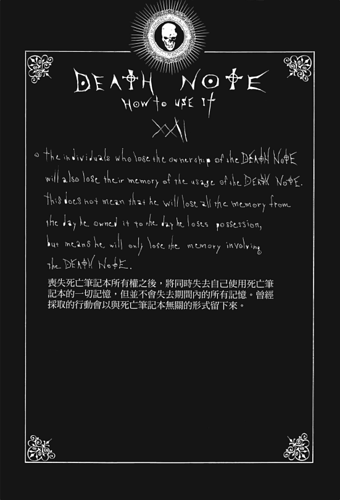 DEATH NOTE
HOW TO USE IT
XXII
○ The individuals who lose the ownership of the DEATH NOTE
will also lose their memory of the usage of the DEATH NOTE.
This does not mean that he will lose all the memory from
the day he owned it to the day he loses possession,
but means he will only lose the memory involving
the DEATH NOTE.
喪失死亡筆記本所有權之後，將同時失去自己使用死亡筆
記本的一切記憶，但並不會失去期間內的所有記憶。曾經
採取的行動會以與死亡筆記本無關的形式留下來。